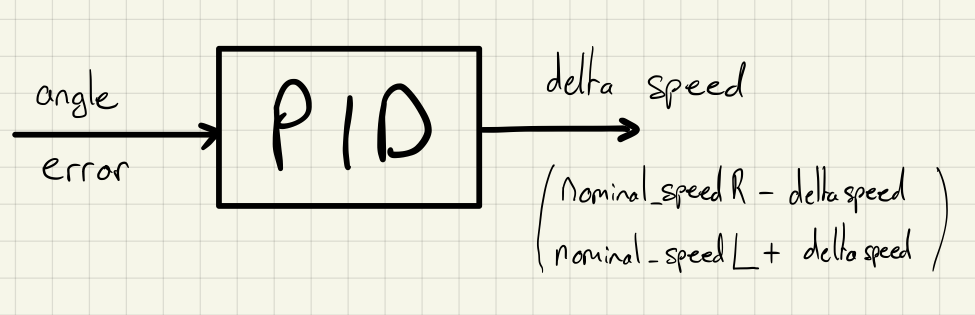 angle
error
PID
delta speed
(nominal_speed R - delta speed
nominal_speed L + delta speed)